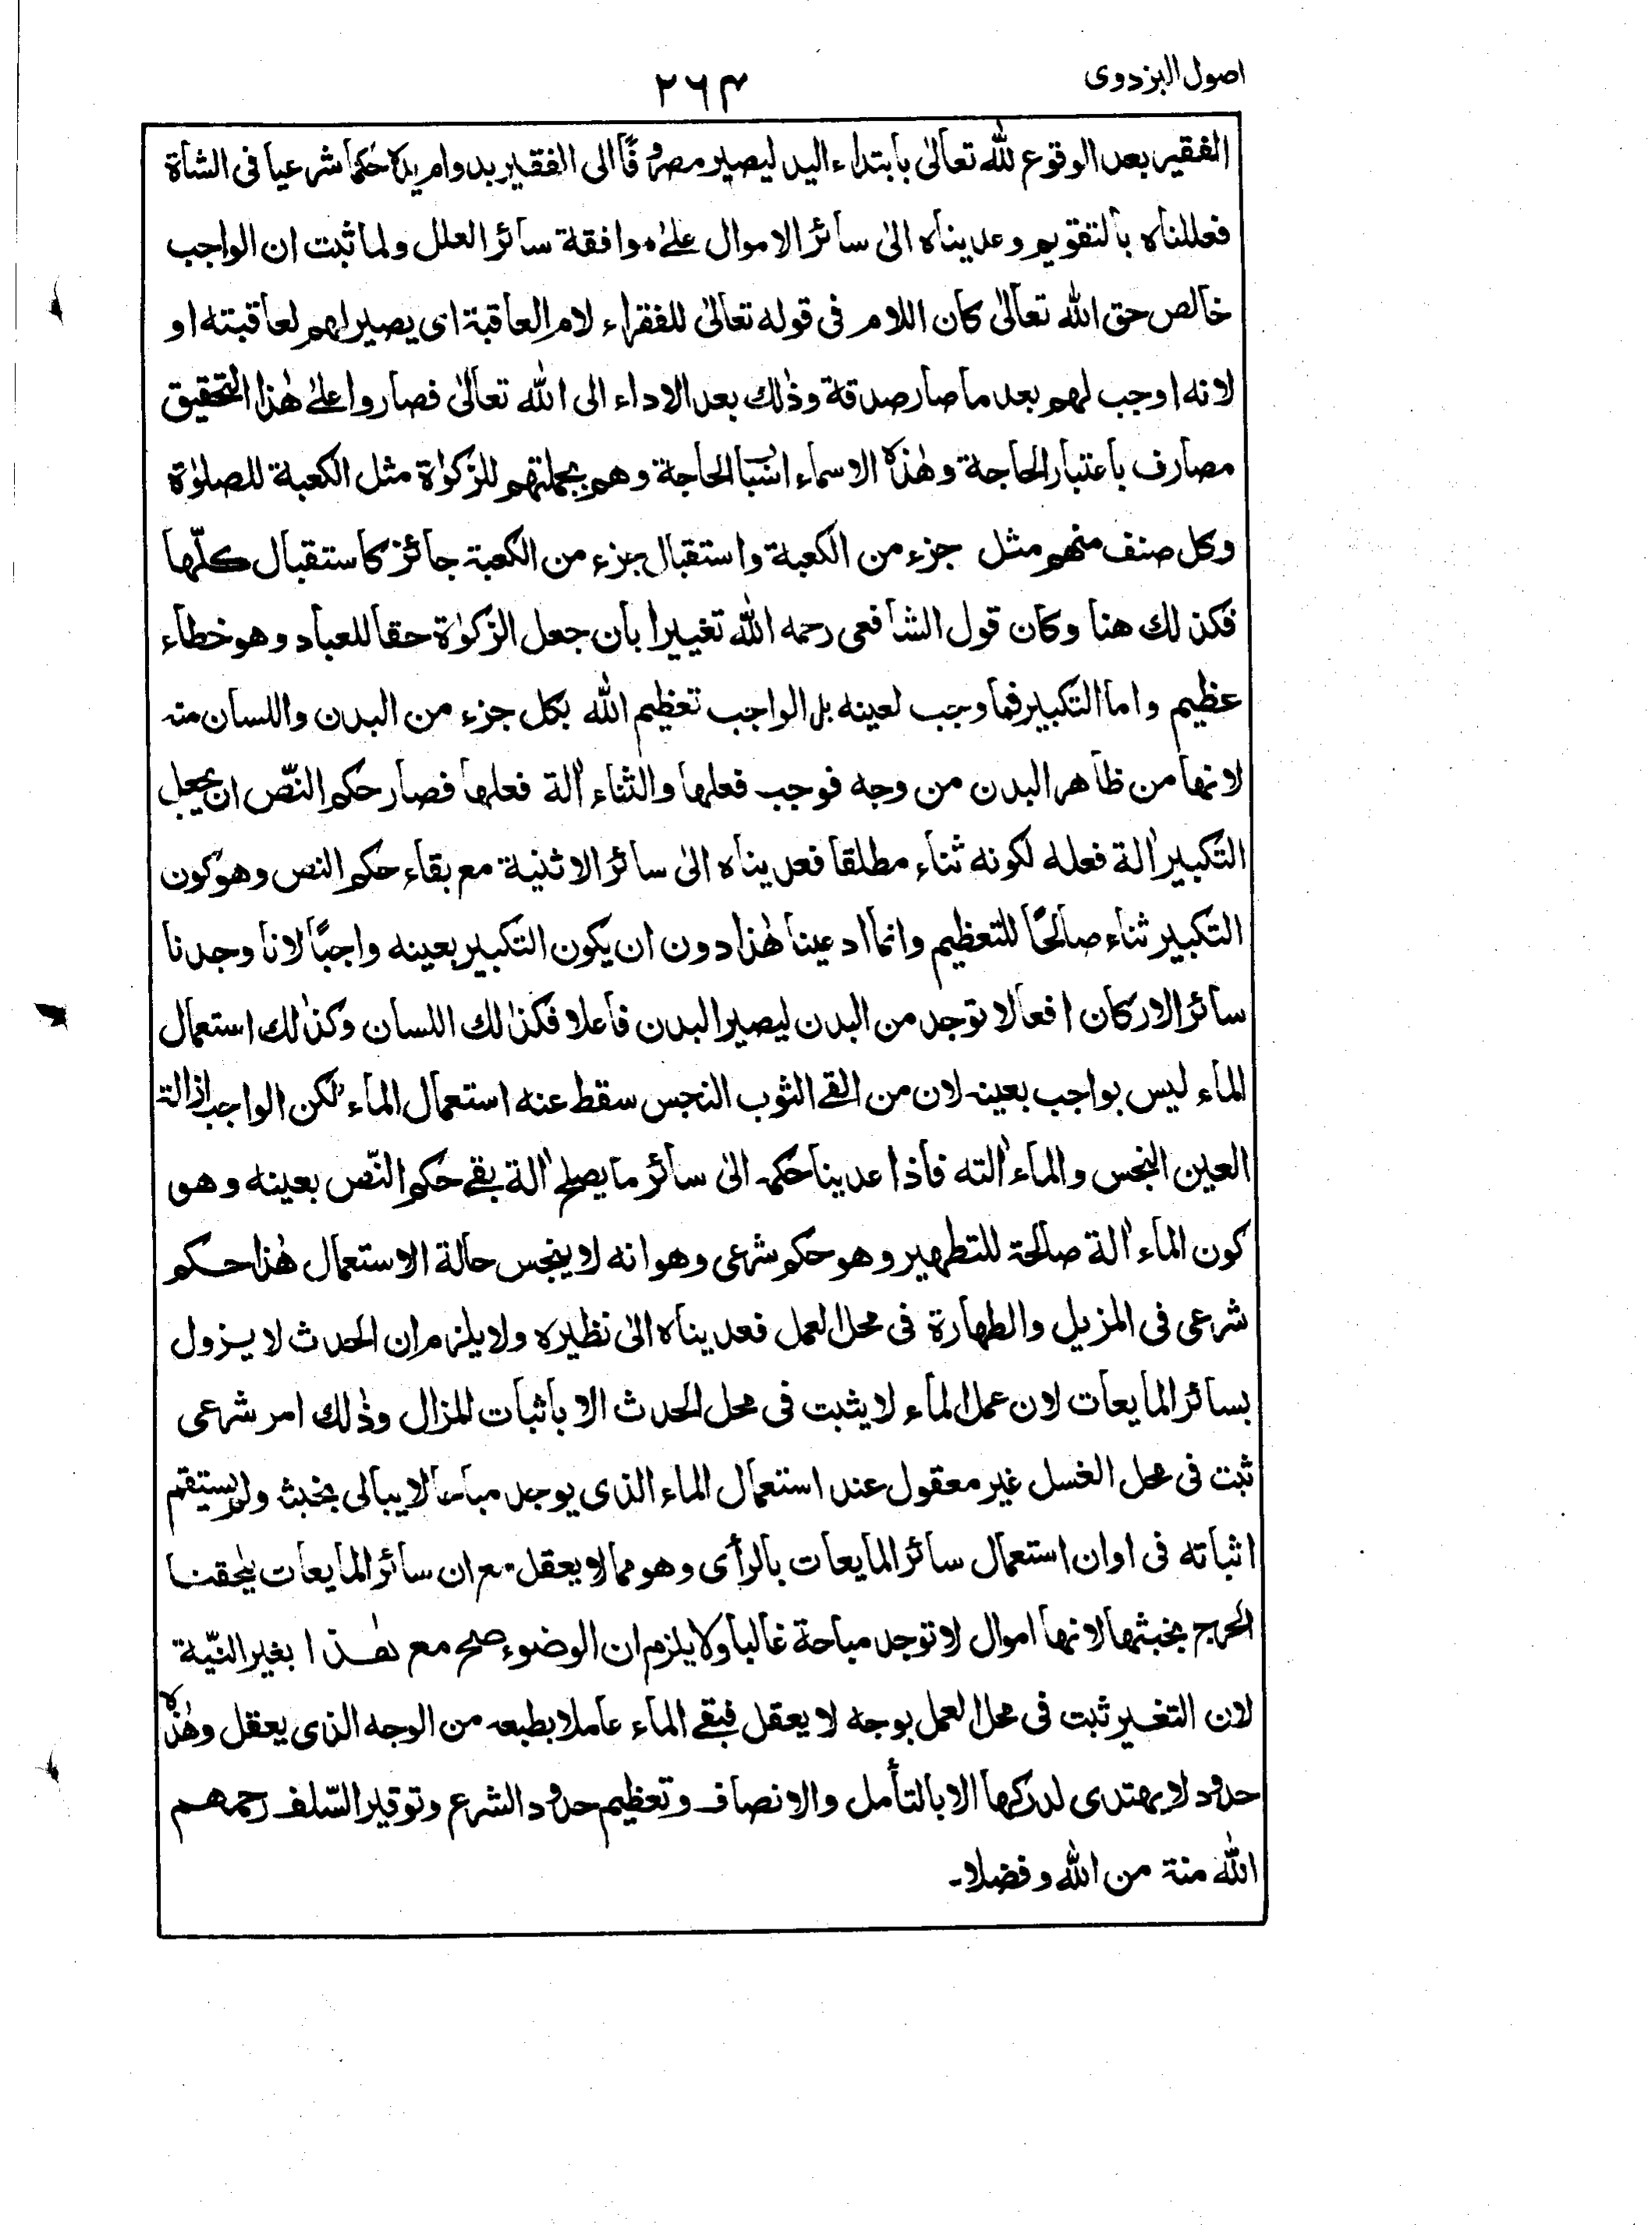 اصول البزدوی
۲۶۴
الفقير بعد الوقوع لله تعالىٰ بابتداء اليد ليصير مصروفًا الى الفقير بدوام يده حكما شرعيا فى الشاة
فعللناه بالتقويم وعديناه الىٰ سائر الاموال علےٰ موافقة سائر العلل ولما ثبت ان الواجب
خالص حق الله تعالىٰ كان اللام فى قوله تعالىٰ للفقراء لام العاقبة اى يصير لهم لعاقبته او
لانه اوجب لهم بعد ما صار صدقة وذٰلك بعد الاداء الى الله تعالىٰ فصاروا علےٰ هٰذا التحقيق
مصارف باعتبار الحاجة وهٰذه الاسماء اسباب الحاجة وهم بجملتهم للزكوٰة مثل الكعبة للصلوٰة
وكل صنف منهم مثل جزء من الكعبة واستقبال جزء من الكعبة جائز كاستقبال كلّها
فكذلك هنا وكان قول الشافعى رحمه الله تغييرا بان جعل الزكوٰة حقا للعباد وهو خطاء
عظيم واما التكبير فما وجب لعينه بل الواجب تعظيم الله بكل جزء من البدن واللسان منه
لانها من ظاهر البدن من وجه فوجب فعلها والثناء اٰلة فعلها فصار حكم النّص ان يجعل
التكبير اٰلة فعله لكونه ثناء مطلقا فعديناه الىٰ سائر الاثنية مع بقاء حكم النص وهو كون
التكبير ثناء صالحًا للتعظيم وانما ادعينا هٰذا دون ان يكون التكبير بعينه واجبًا لانا وجدنا
سائر الاركان افعالا توجد من البدن ليصير البدن فاعلا فكذٰلك اللسان وكذٰلك استعمال
الماء ليس بواجب بعينه لان من القے الثوب النجس سقط عنه استعمال الماء لكن الواجب ازالة
العين النجس والماء اٰلته فاذا عدينا حكمه الىٰ سائر ما يصلح اٰلة بقے حكم النّص بعينه وهو
كون الماء اٰلة صالحة للتطهير وهو حكم شرعى وهو انه لا ينجس حالة الاستعمال هٰذا حكم
شرعى فى المزيل والطهارة فى محل العمل فعديناه الىٰ نظيره ولا يلزم ان الحدث لا يزول
بسائر المايعات لان عمل الماء لا يثبت فى محل الحدث الا باثبات المزال وذٰلك امر شرعى
ثبت فى محل الغسل غير معقول عند استعمال الماء الذى يوجد مباحا لا يبالى بخبثه ولم يستقم
اثباته فى اوان استعمال سائر المايعات بالرأى وهو مما لا يعقل مع ان سائر المايعات يلحقنا
الحرج بخبثها لانها اموال لا توجد مباحة غالبا ولا يلزم ان الوضوء صح مع هٰذا بغير النيّة
لان التغير ثبت فى محل العمل بوجه لا يعقل فبقے الماء عاملا بطبعه من الوجه الذى يعقل وهٰذه
حدود لا يهتدى لدركها الا بالتأمل والانصاف وتعظيم حدود الشرع وتوقير السّلف رحمهم
الله منة من الله وفضلا۔